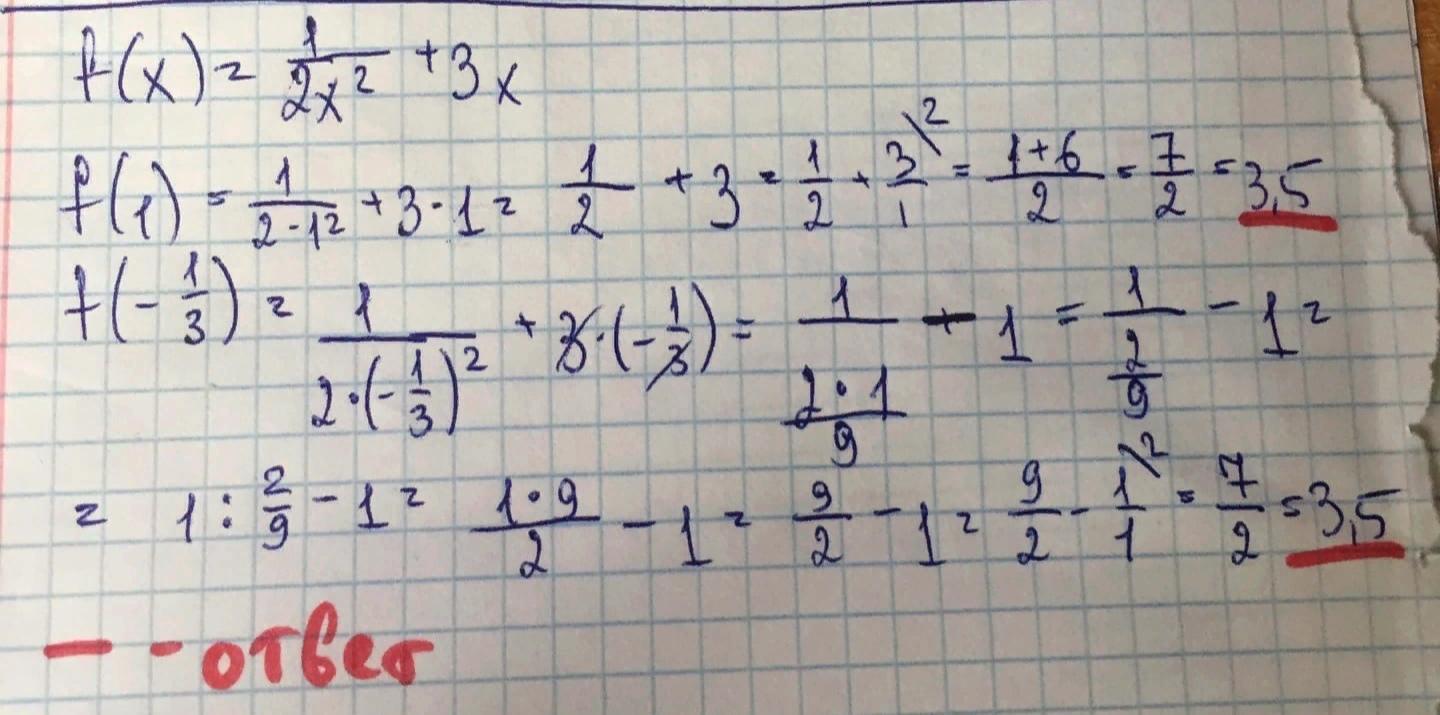 f(x) = 1/(2x²) + 3x
f(1) = 1/(2·1²) + 3·1 = 1/2 + 3 = 1/2 + 3/1\2 = (1+6)/2 = 7/2 = 3,5
f(-1/3) = 1/(2·(-1/3)²) + 3·(-1/3) = 1/((2·1)/9) - 1 = 1/(2/9) - 1 =
= 1 : 2/9 - 1 = (1·9)/2 - 1 = 9/2 - 1 = 9/2 - 1/1\2 = 7/2 = 3,5
— - ответ